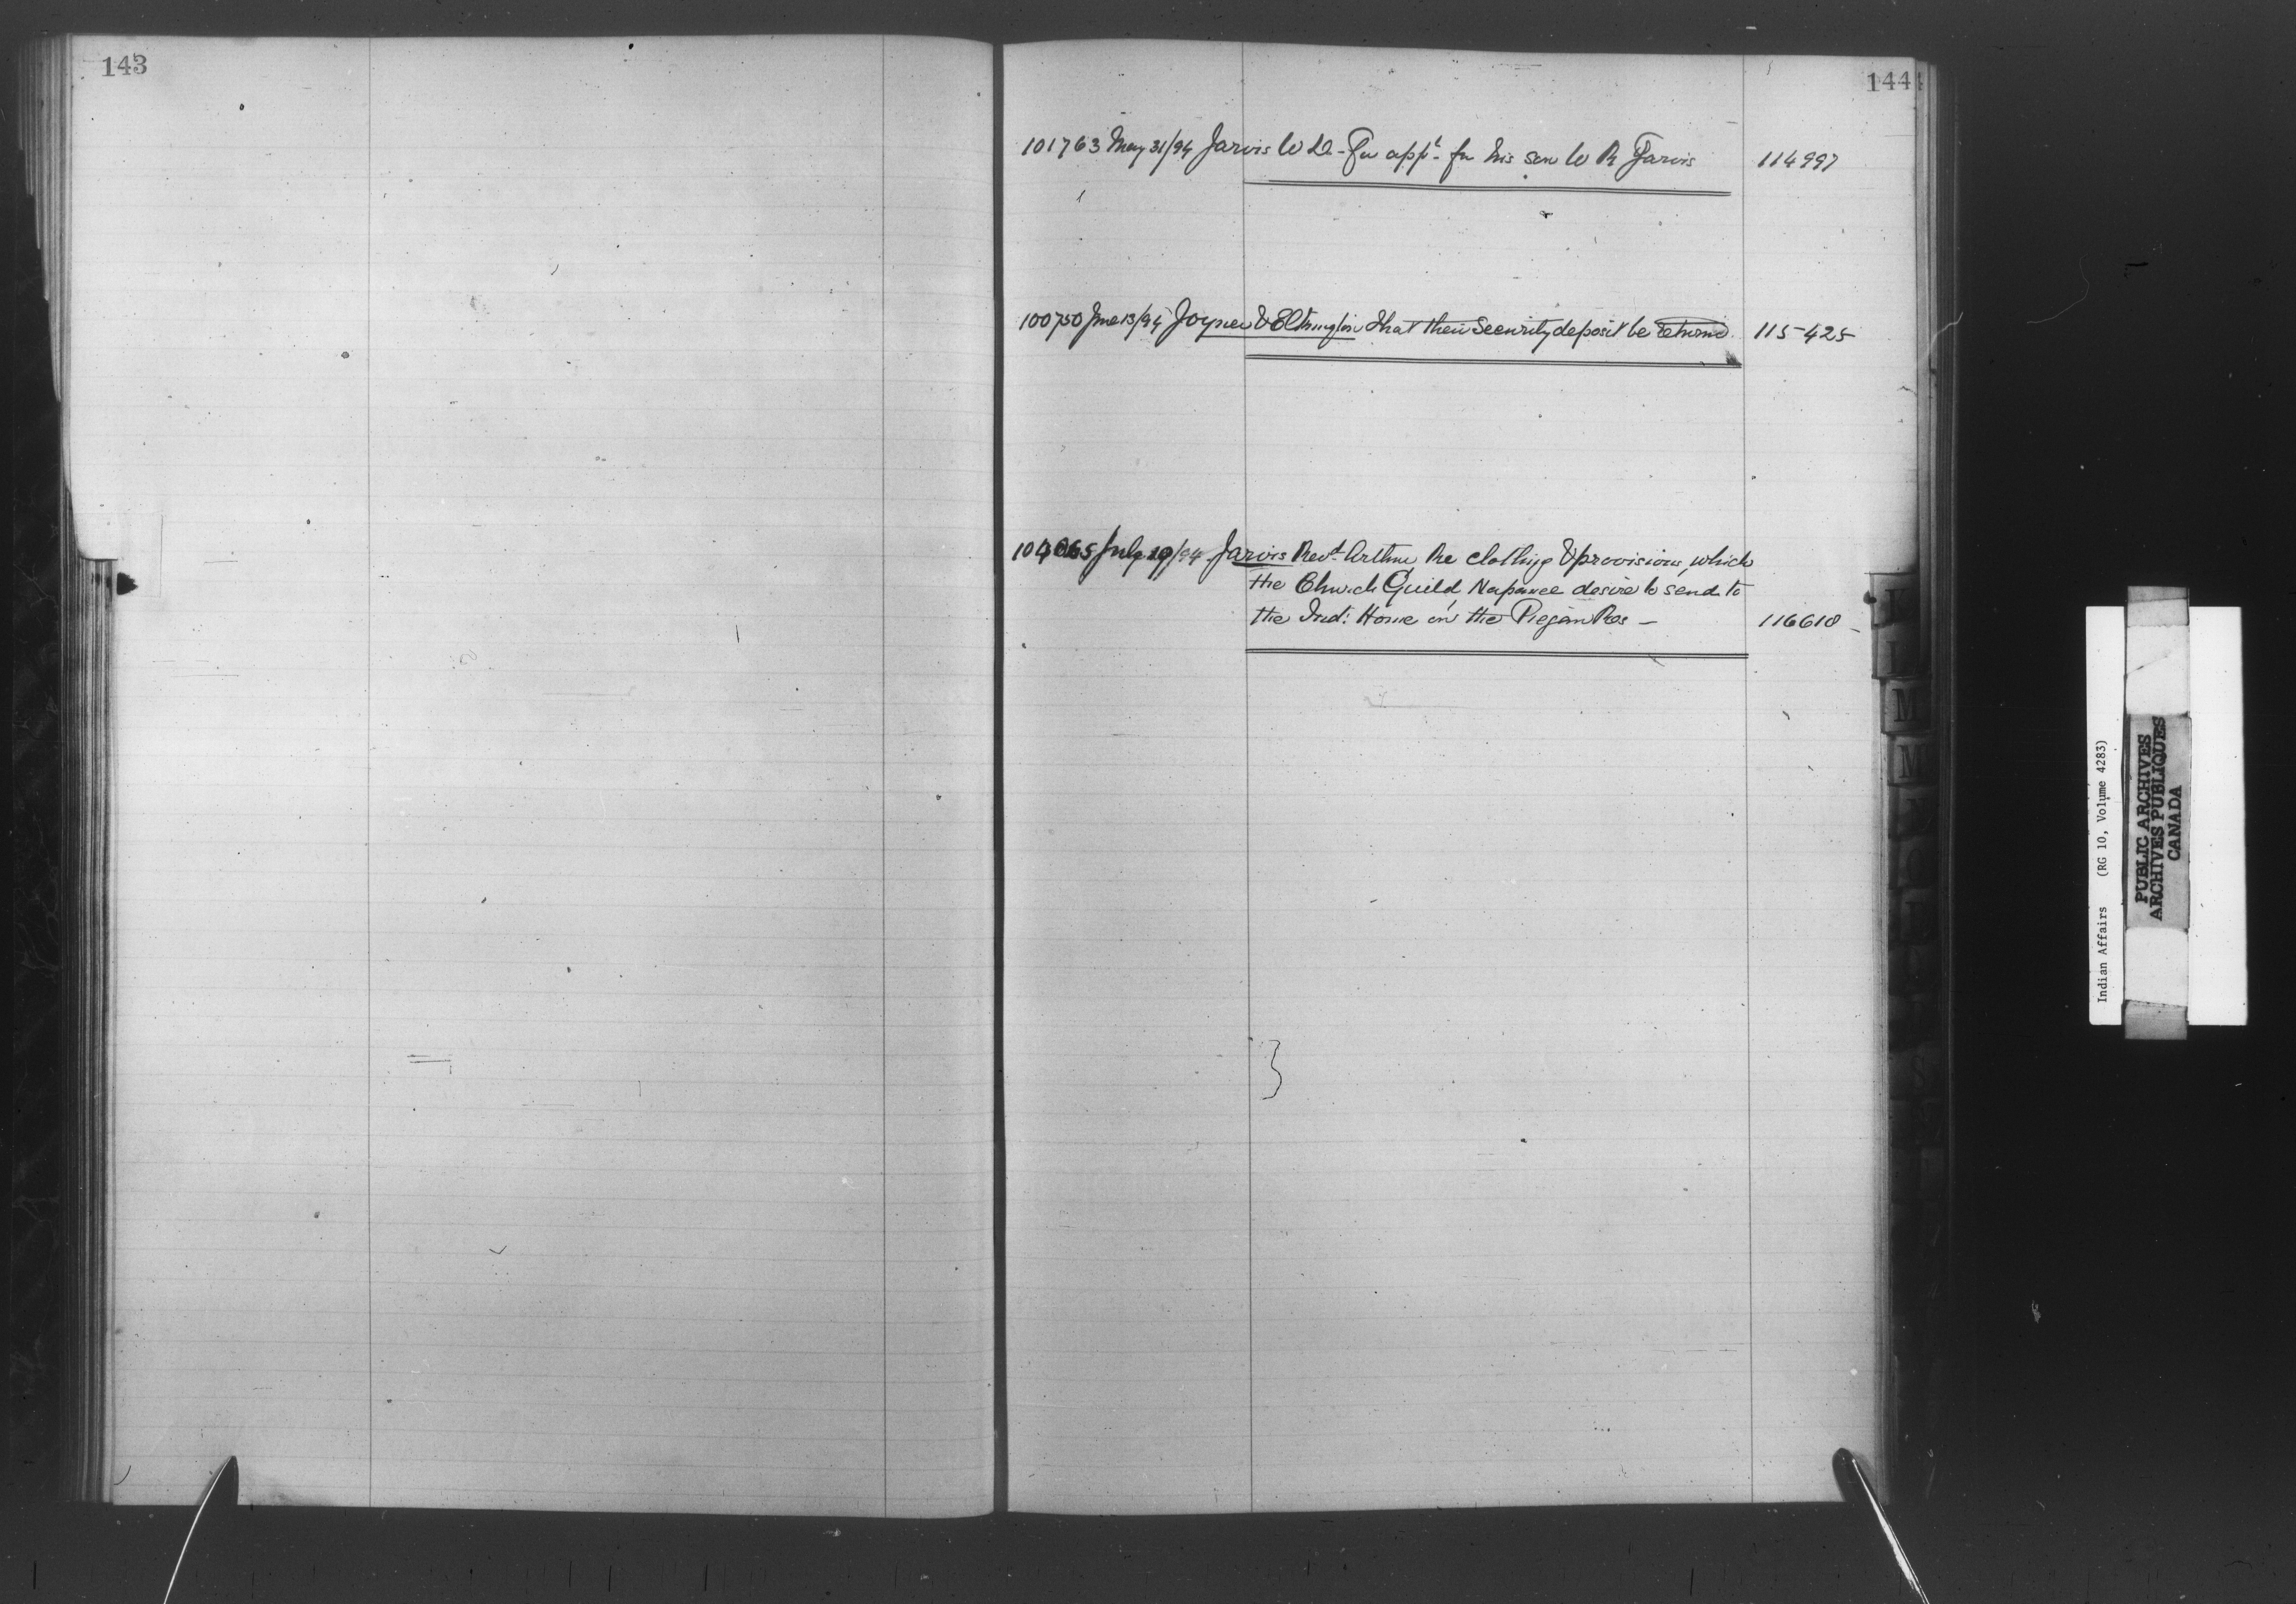 143
144
101763 May 31/94 Jarvis W D - For appt. for his son W R Jarvis 114997
100750 June 13/94 Joyner & Elkington that their Security deposit be returned. 115425
July 19/94 Jarvis Revd. Arthur Re clothing & provisions, which
the Church Guild, Napanee desire to send to
the Ind: Home on the Piegan Res - 116618
M
M
Indian Affairs (RG 10, Volume 4283)
PUBLIC ARCHIVES
ARCHIVES PUBLIQUES
CANADA